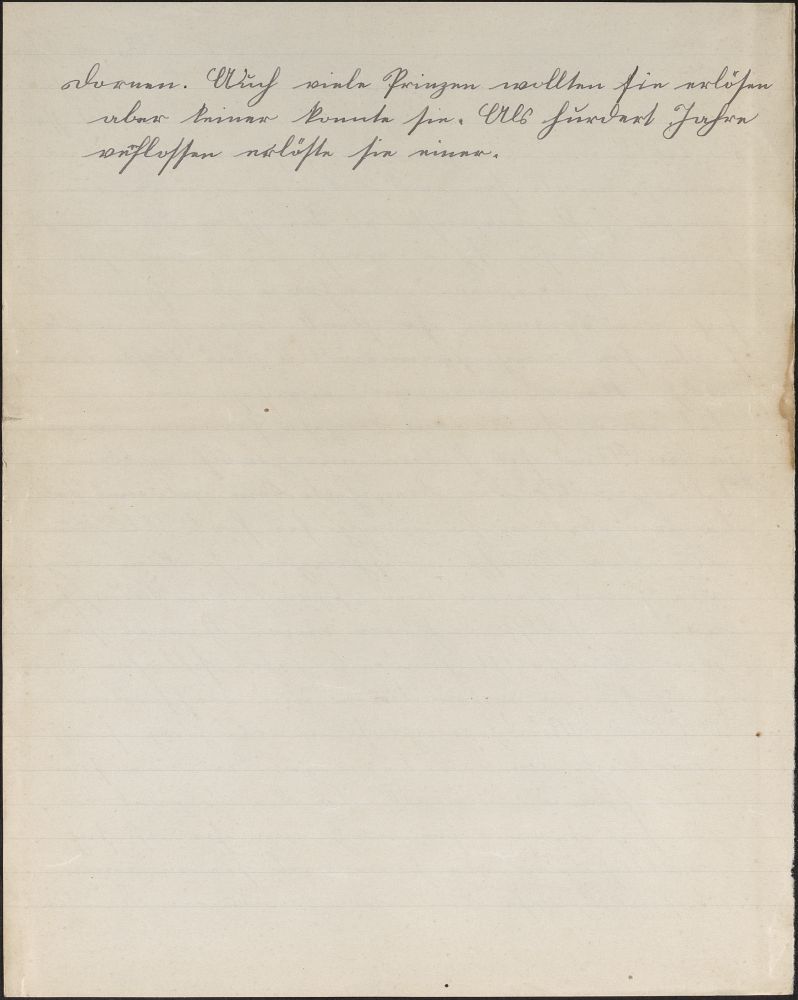 Dornen. Auch viele Prinzen wollten sie erlösen
aber keiner konnte sie. Als hundert Jahre
verflossen erlöste sie einer.